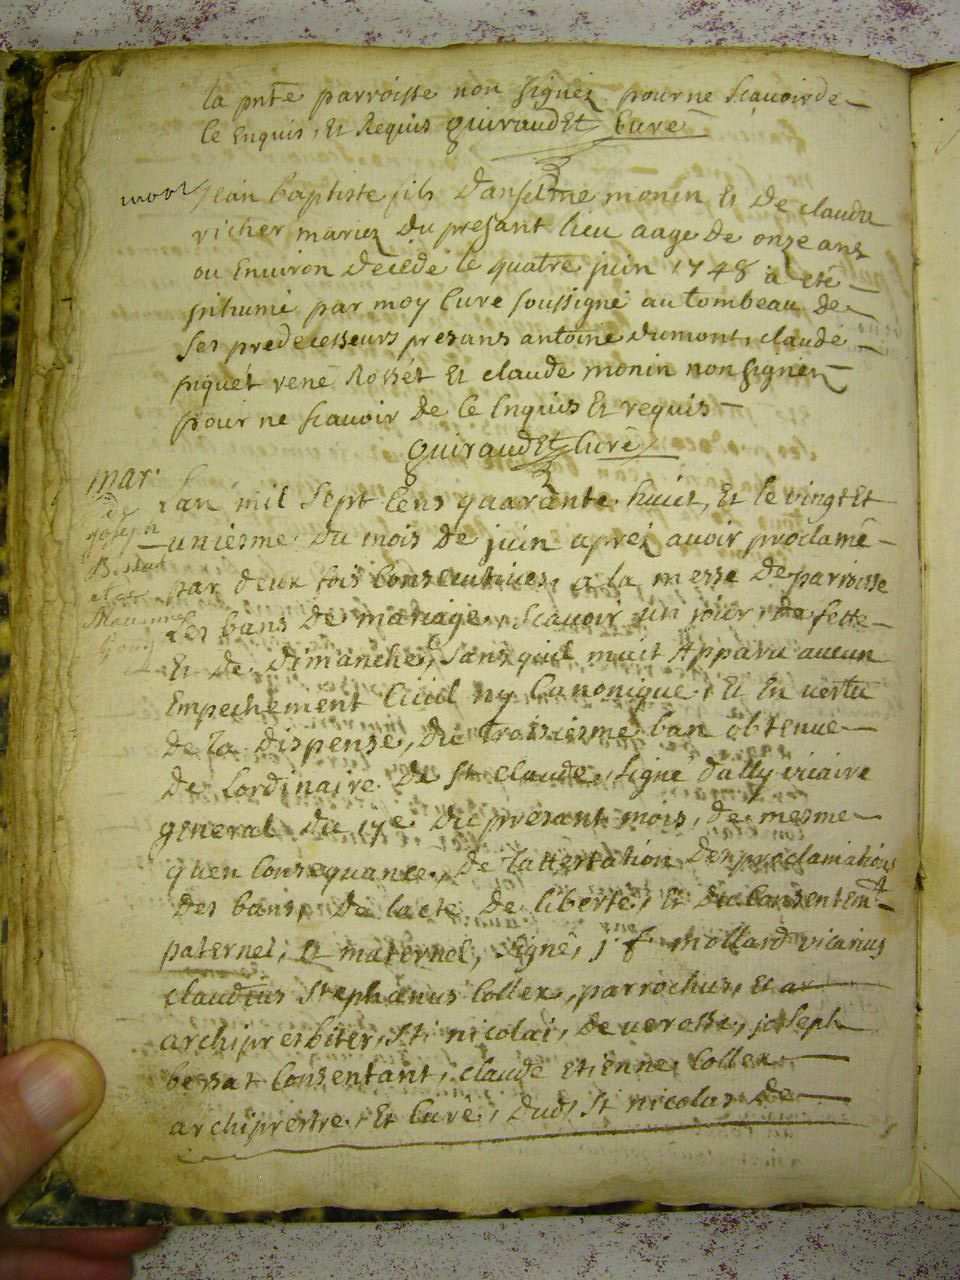 la pnte parroisse non signez pour ne scavoir de
ce Enquis, Et Requis Guiraudet Curé
mort
Jean baptiste fils d'anselme monin Et de claudu
richer mariez du presant lieu aage de onze ans
ou Environ decedé le quatre juin 1748 a eté
inhumé par moy Curé soussigné au tombeau de
ses predecesseurs presans antoine dumont, claude
piquet rené Rosset Et claude monin non signez
pour ne scavoir de ce Enquis Et requis
Guiraudet Curé
mar.
de
joseph
Bessat
et
Mariann
Lan mil sept Cens quarante huict, Et le vingt Et
uniesme du mois de juin aprez avoir proclamé
par deux fois Consecutives, a la messe de parroisse
Les bans de mariage, scavoir un jour de feste
Et de dimanche, sans quil m'ait Apparu aucun
Empechement Civil ny Canonique, Et En vertu
de la dispense, du troisiesme ban obtenue
de Lordinaire de St Claude, signé dally vicaire
general du 17e du presant mois, de mesme
quen Consequance, de Lattestation des proclamations
des bans, de lacte de liberté, Et du Consentemt
paternel, Et maternel, signé, j f mollard vicarius
claudius stephanus Collex, parrochus, Et ar
archipresbiter, sti nicolai, de verosse, joseph
bessat Consentant, claude Etienne Collex
archiprestre, Et Curé, dud, st nicolas de